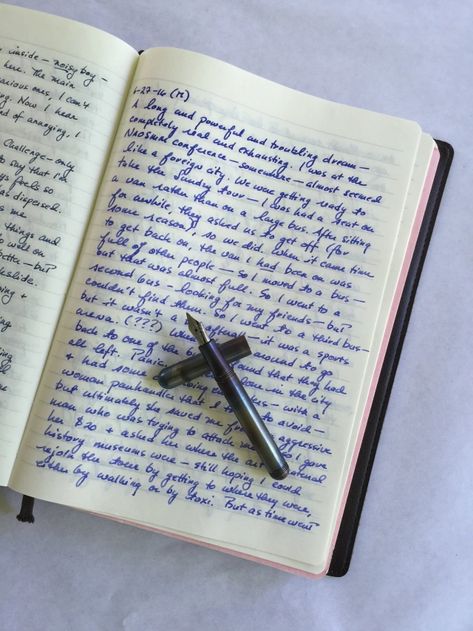 inside - noisy boy -
here. The main
various ones, I can't
ing. Now I hear
kind of annoying. I
Challenge - only
to say that I'm
ays feels so
as dispersed.
s me
things and
o well on
but
backslide.
ing +
6-27-16 (M)
A long and powerful and troubling dream -
completely real and exhausting. I was at the
conference - somewhere - almost seemed
like a foreign city. We were getting ready to
take the Sunday tour - I was had a seat on
a van rather than on a large bus. After sitting
for awhile, they asked us to get off (for
some reason) so we did. When it came time
to get back on, the van I had been on was
full of other people - so I moved to a bus -
but that was almost full. So I went to a
second bus - looking for my friends - but
couldn't find them. So I went to a third bus -
but it wasn't a it was a sports
arena. (???) When around to go
back to one of the found that they had
all left. Panic alone in the city
+ had some - with a
woman panhandler that I to avoid -
but ultimately she saved me aggressive
man who was trying to attack me so I gave
her $20 + asked her where the art + natural
history museums were - still hoping I could
rejoin the tour by getting to where they were,
either by walking or by taxi. But as time went